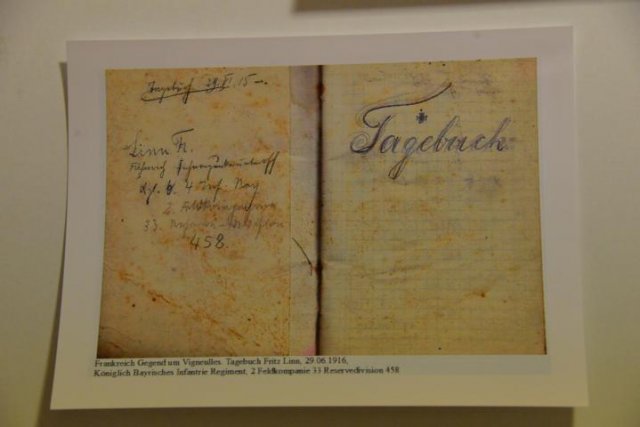 Tagebuch
Linn Fr.
Kgl. b. 4 Inf. Reg
2. Feldkompanie
458.
Tagebuch
Frankreich Gegend um Vigneulles. Tagebuch Fritz Linn, 29.06.1916,
Königlich Bayrisches Infantrie Regiment, 2 Feldkompanie 33 Reservedivision 458